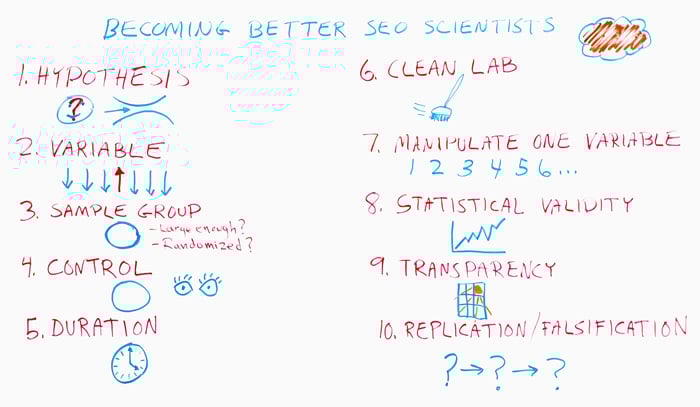 BECOMING BETTER SEO SCIENTISTS
1. HYPOTHESIS
?
2. VARIABLE
3. SAMPLE GROUP
- Large enough?
- Randomized?
4. CONTROL
5. DURATION
6. CLEAN LAB
7. MANIPULATE ONE VARIABLE
1 2 3 4 5 6...
8. STATISTICAL VALIDITY
9. TRANSPARENCY
10. REPLICATION/FALSIFICATION
? → ? → ?